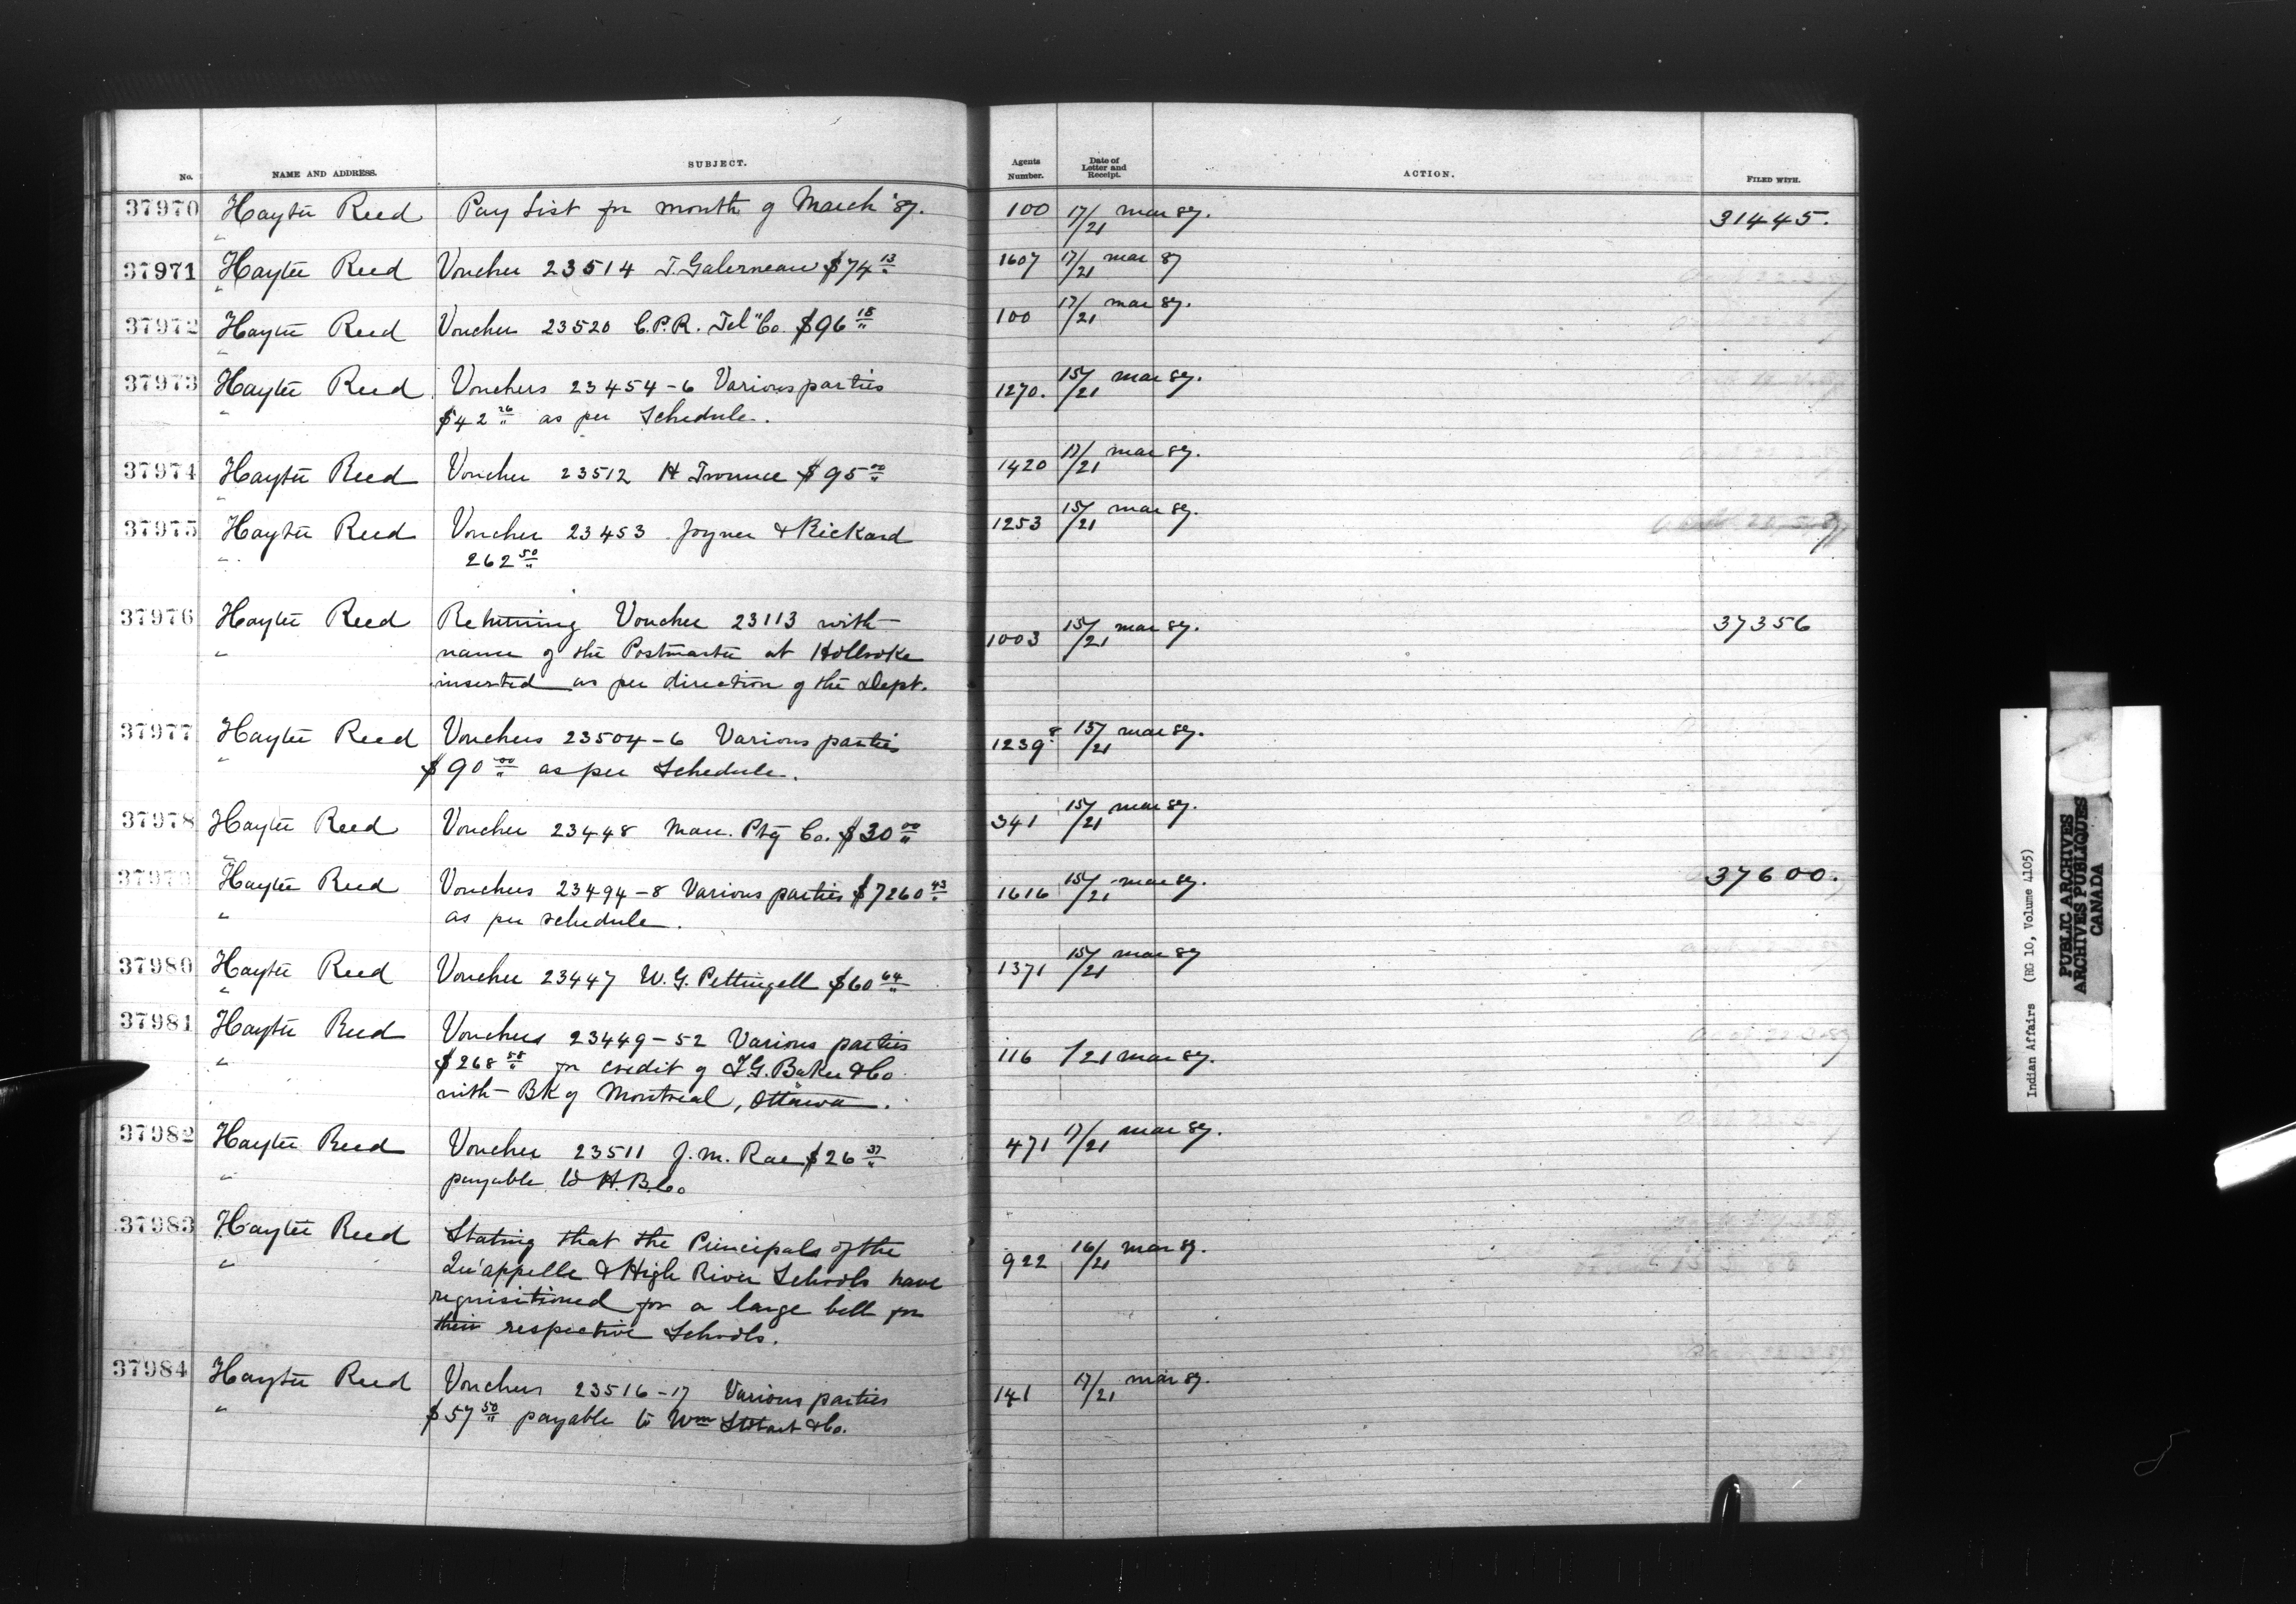 No. NAME AND ADDRESS. SUBJECT. Agents Number. Date of Letter and Receipt. ACTION. FILED WITH.
37970 Hayter Reed Pay List for month of March '87. 100 17/21 mar 87. 31445.
"
37971 Hayter Reed Voucher 23514 T. Galerneau $74 13 1607 17/21 mar 87
"
37972 Hayter Reed Voucher 23520 C.P.R. Tel" Co. $96 18 100 17/21 mar 87.
"
37973 Hayter Reed Vouchers 23454-6 Various parties 1270. 15/21 mar 87.
" $42 26 as per Schedule.
37974 Hayter Reed Voucher 23512 H $95 00 1420 17/21 mar 87.
"
37975 Hayter Reed Voucher 23453 Joyner & Rickard 1253 15/21 mar 87.
" 262 50
37976 Hayter Reed Returning Voucher 23113 with 1003 15/21 mar 87. 37356
" name of the Postmaster at Holbroke
inserted as per direction of the Dept.
37977 Hayter Reed Vouchers 23504-6 Various parties 1239 8 15/21 mar 87.
" $90 00 as per Schedule.
37978 Hayter Reed Voucher 23448 Man. Ptg Co. $30 00 341 15/21 mar 87.
"
37979 Hayter Reed Vouchers 23494-8 Various parties $7260 43 1616 15/21 mar 87. 37600.
" as per schedule.
37980 Hayter Reed Voucher 23447 W. G. Pettingell $60 64 1371 15/21 mar 87
"
37981 Hayter Reed Vouchers 23449-52 Various parties 116 /21 mar 87.
" $268 58 for credit of I.G. Baker & Co
with Bk of Montreal, Ottawa.
37982 Hayter Reed Voucher 23511 J. M. Rae $26 37 471 17/21 mar 87.
" payable to H.B.Co
37983 Hayter Reed Stating that the Principals of the 922 16/21 mar 87.
" Qu'appelle & High River Schools have
requisitioned for a large bell for
their respective Schools.
37984 Hayter Reed Vouchers 23516-17 Various parties 141 17/21 mar 87.
" $57 50 payable to Wm Stobart & Co.
Indian Affairs (RG 10, Volume 4105)
PUBLIC ARCHIVES
ARCHIVES PUBLIQUES
CANADA